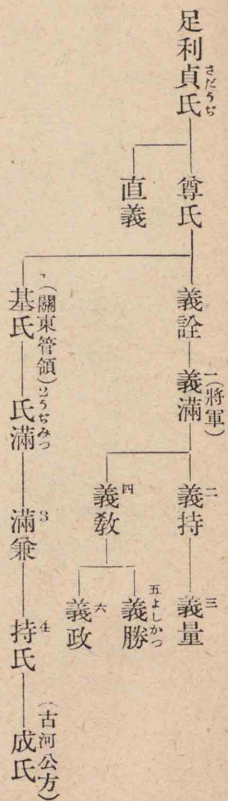 足利貞氏さだうぢ
尊氏
直義
義詮
義滿 一(將軍)
義持 二
義量 三
義教 四
義勝 五よしかつ
義政 六
基氏 (關東管領)
氏滿 2うぢみつ
滿兼 3
持氏 4
成氏 (古河公方)